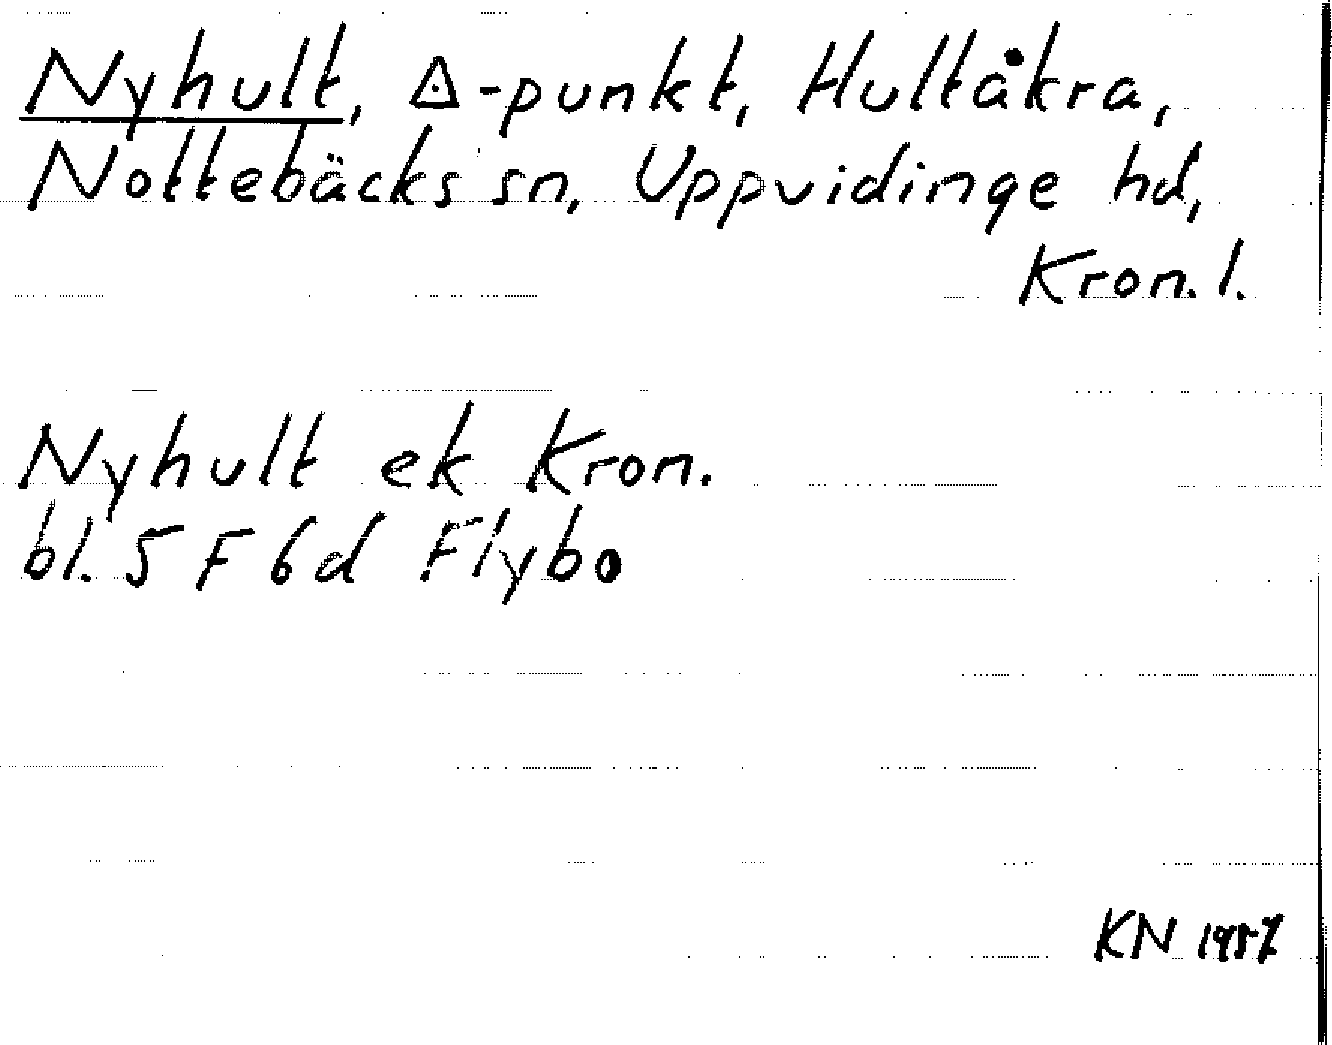 Nyhult, ◬-punkt, Hultåkra,
Nottebäcks sn, Uppvidinge hd,
Kron. l.
Nyhult ek Kron.
bl. 5 F 6d Flybo
KN 1957